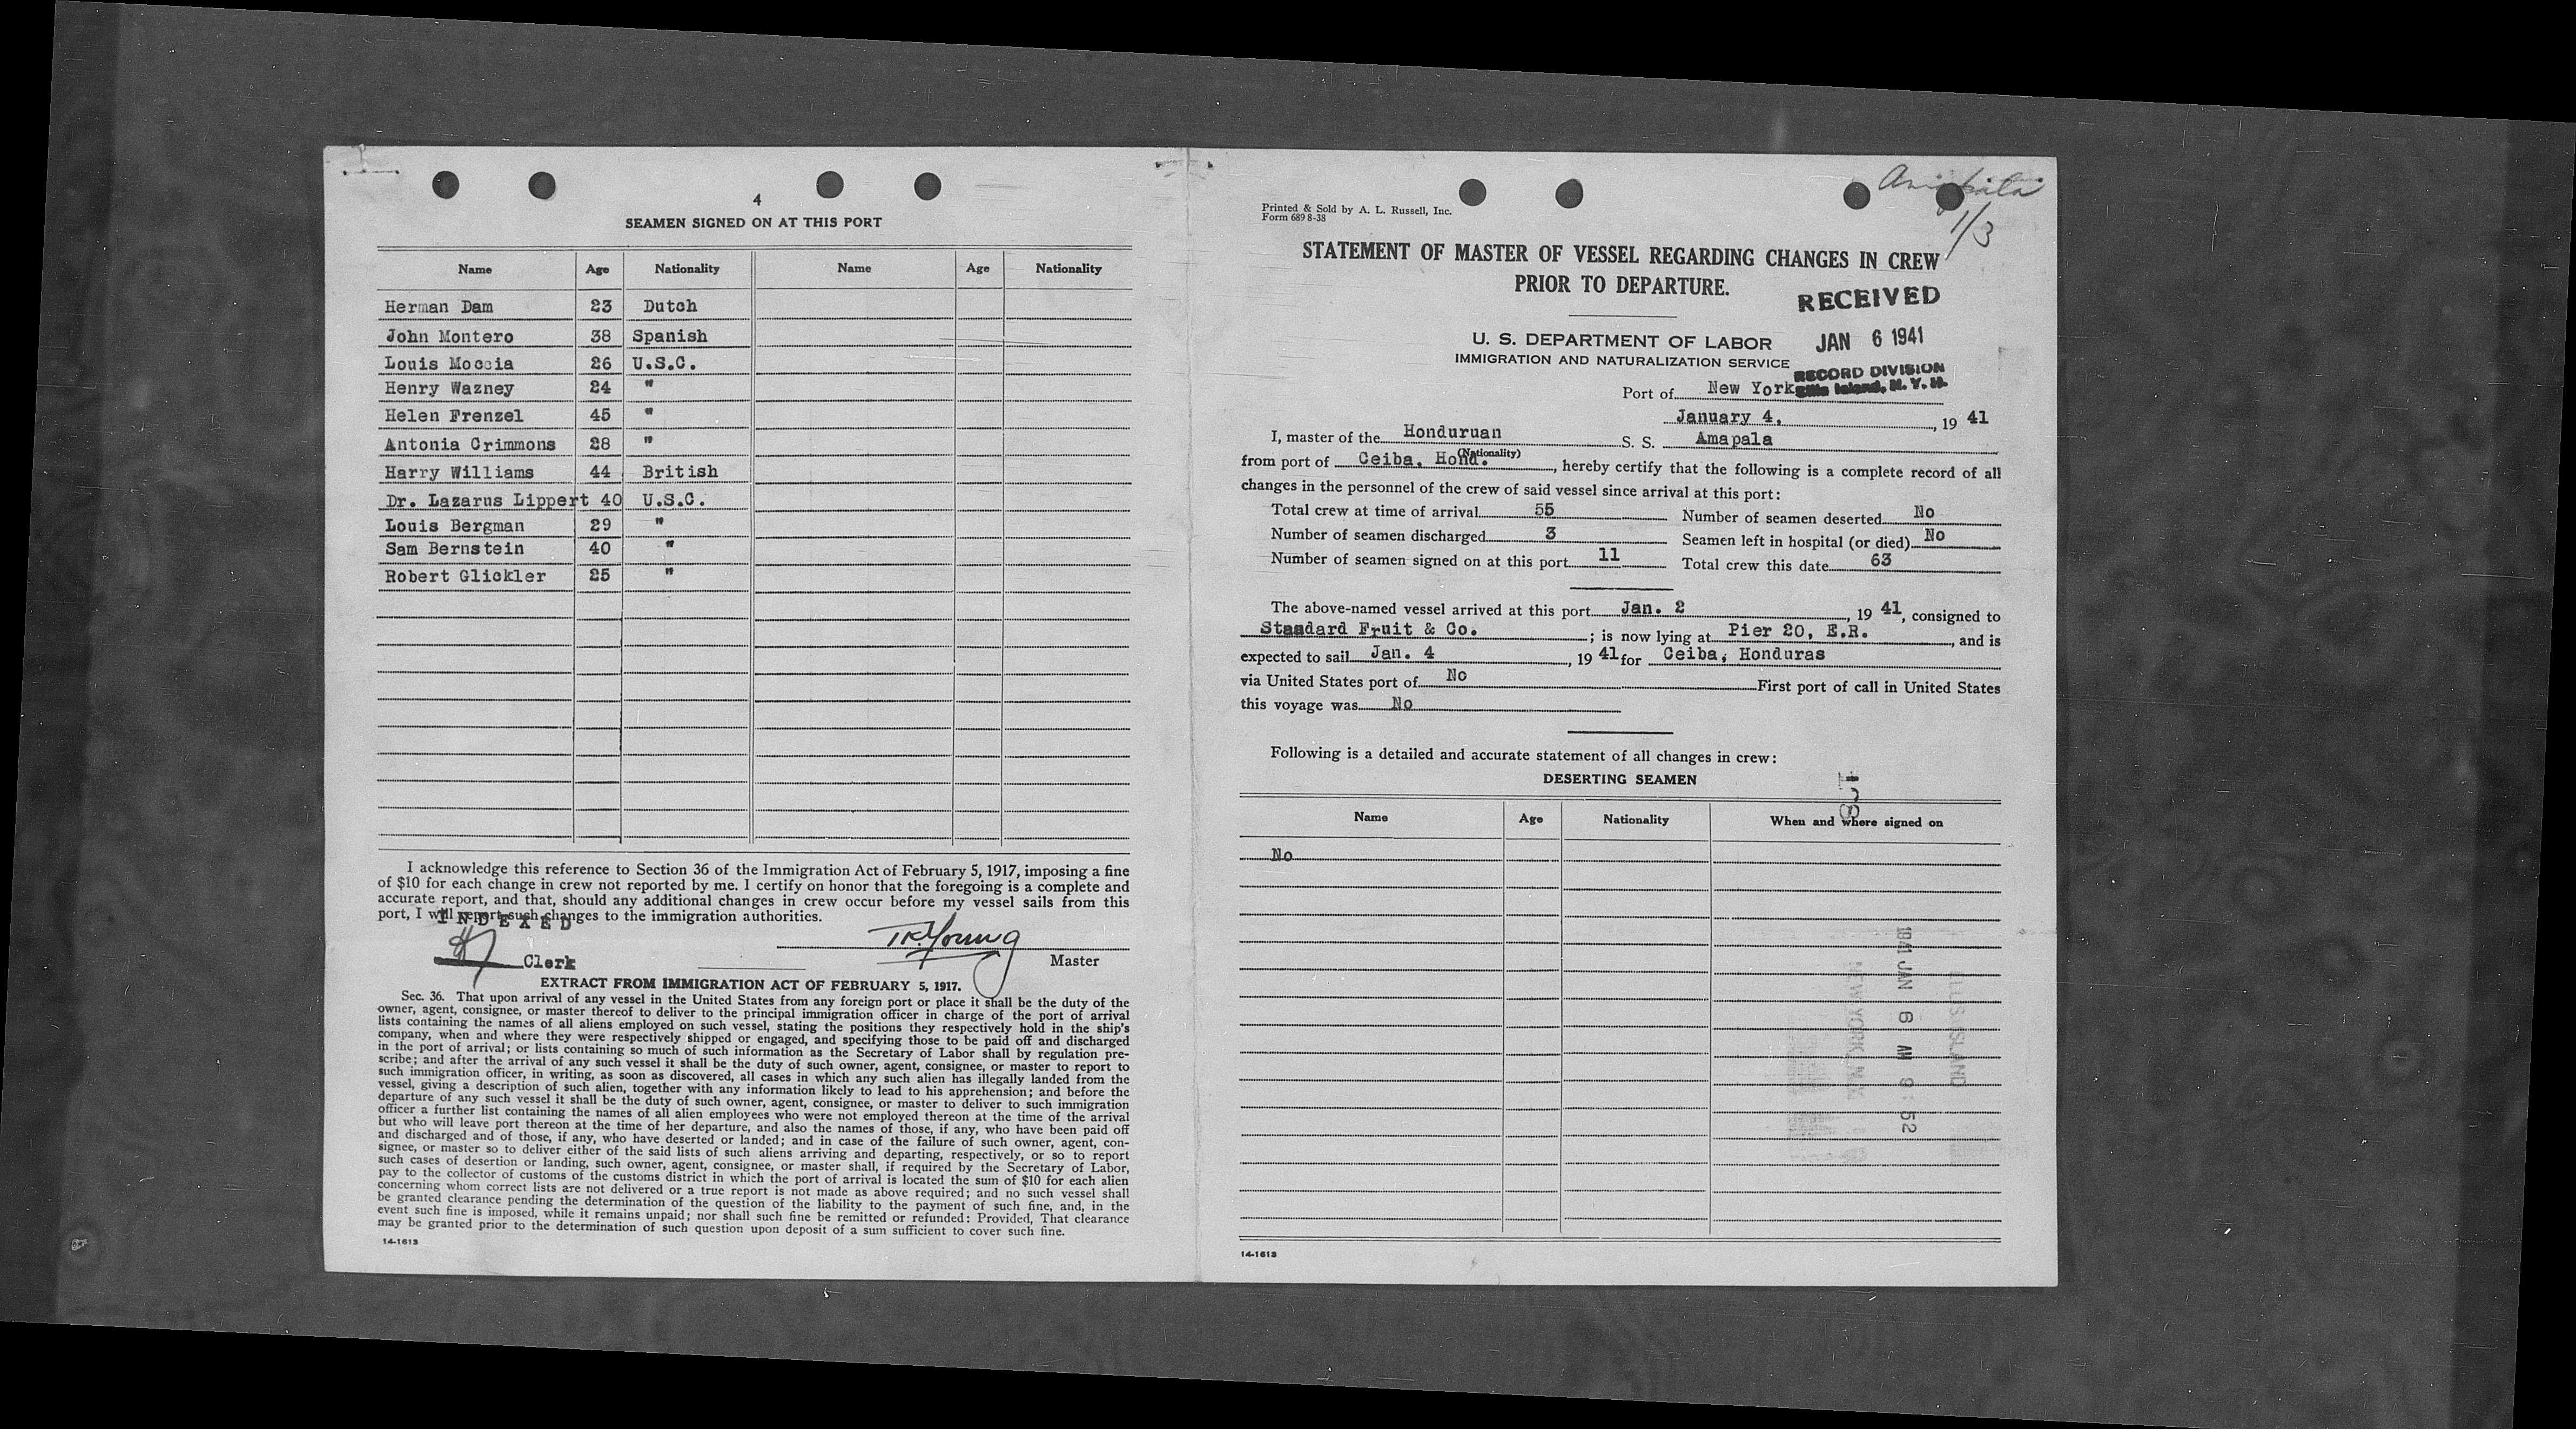 4
SEAMEN SIGNED ON AT THIS PORT
Name Age Nationality Name Age Nationality
Herman Dam 23 Dutch
John Montero 38 Spanish
Louis Moccia 26 U.S.C.
Henry Wazney 24 "
Helen Frenzel 45 "
Antonia Crimmons 28 "
Harry Williams 44 British
Dr. Lazarus Lippert 40 U.S.C.
Louis Bergman 29 "
Sam Bernstein 40 "
Robert Glickler 25 "
I acknowledge this reference to Section 36 of the Immigration Act of February 5, 1917, imposing a fine
of $10 for each change in crew not reported by me. I certify on honor that the foregoing is a complete and
accurate report, and that, should any additional changes in crew occur before my vessel sails from this
port, I will report such changes to the immigration authorities.
INDEXED
T K Young
Clerk Master
EXTRACT FROM IMMIGRATION ACT OF FEBRUARY 5, 1917.
Sec. 36. That upon arrival of any vessel in the United States from any foreign port or place it shall be the duty of the
owner, agent, consignee, or master thereof to deliver to the principal immigration officer in charge of the port of arrival
lists containing the names of all aliens employed on such vessel, stating the positions they respectively hold in the ship's
company, when and where they were respectively shipped or engaged, and specifying those to be paid off and discharged
in the port of arrival; or lists containing so much of such information as the Secretary of Labor shall by regulation pre-
scribe; and after the arrival of any such vessel it shall be the duty of such owner, agent, consignee, or master to report to
such immigration officer, in writing, as soon as discovered, all cases in which any such alien has illegally landed from the
vessel, giving a description of such alien, together with any information likely to lead to his apprehension; and before the
departure of any such vessel it shall be the duty of such owner, agent, consignee, or master to deliver to such immigration
officer a further list containing the names of all alien employees who were not employed thereon at the time of the arrival
but who will leave port thereon at the time of her departure, and also the names of those, if any, who have been paid off
and discharged and of those, if any, who have deserted or landed; and in case of the failure of such owner, agent, con-
signee, or master so to deliver either of the said lists of such aliens arriving and departing, respectively, or so to report
such cases of desertion or landing, such owner, agent, consignee, or master shall, if required by the Secretary of Labor,
pay to the collector of customs of the customs district in which the port of arrival is located the sum of $10 for each alien
concerning whom correct lists are not delivered or a true report is not made as above required; and no such vessel shall
be granted clearance pending the determination of the question of the liability to the payment of such fine, and, in the
event such fine is imposed, while it remains unpaid; nor shall such fine be remitted or refunded: Provided, That clearance
may be granted prior to the determination of such question upon deposit of a sum sufficient to cover such fine.
14-1613
Amapala
1/3
Printed & Sold by A. L. Russell, Inc.
Form 689 8-38
STATEMENT OF MASTER OF VESSEL REGARDING CHANGES IN CREW
PRIOR TO DEPARTURE.
RECEIVED
JAN 6 1941
RECORD DIVISION
Ellis Island, N. Y. H.
U. S. DEPARTMENT OF LABOR
IMMIGRATION AND NATURALIZATION SERVICE
Port of New York
January 4, , 19 41
I, master of the Honduruan S. S. Amapala
(Nationality)
from port of Ceiba, Hond. , hereby certify that the following is a complete record of all
changes in the personnel of the crew of said vessel since arrival at this port:
Total crew at time of arrival 55 Number of seamen deserted No
Number of seamen discharged 3 Seamen left in hospital (or died) No
Number of seamen signed on at this port 11 Total crew this date 63
The above-named vessel arrived at this port Jan. 2 , 19 41, consigned to
Standard Fruit & Co. ; is now lying at Pier 20, E.R. , and is
expected to sail Jan. 4 , 19 41 for Ceiba, Honduras
via United States port of No First port of call in United States
this voyage was No
Following is a detailed and accurate statement of all changes in crew:
DESERTING SEAMEN
Name Age Nationality When and where signed on
No
1941 JAN 6 AM 9:52
ELLIS ISLAND
NEW YORK
14-1613